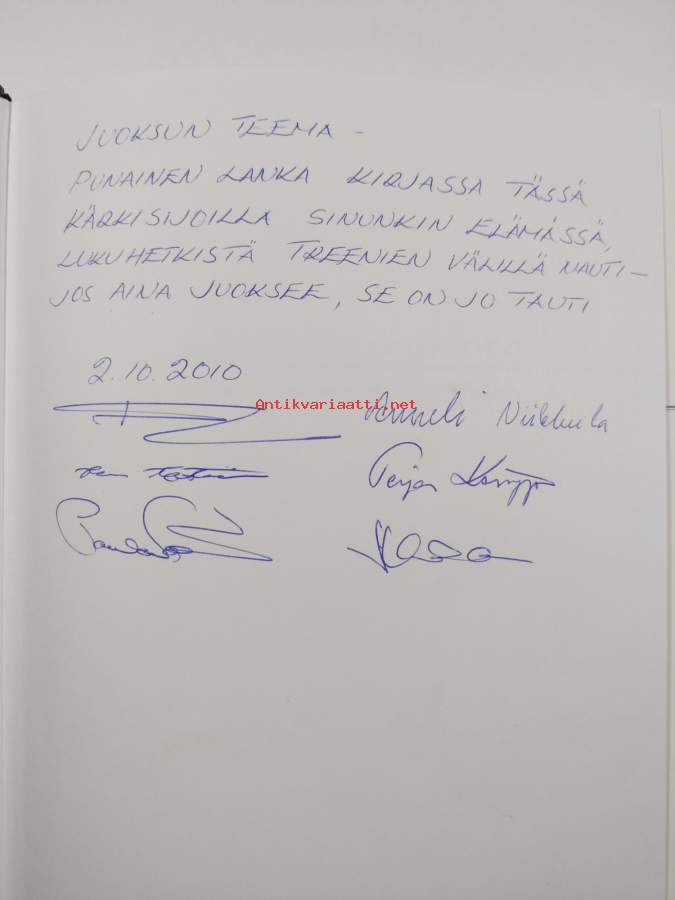 JUOKSUN TEEMA –
PUNAINEN LANKA KIRJASSA TÄSSÄ
KÄRKISIJOILLA SINUNKIN ELÄMÄSSÄ,
LUKUHETKISTÄ TREENIEN VÄLILLÄ NAUTI –
JOS AINA JUOKSEE, SE ON JO TAUTI
2.10.2010
Antikvariaatti.net
Anneli Niikkula